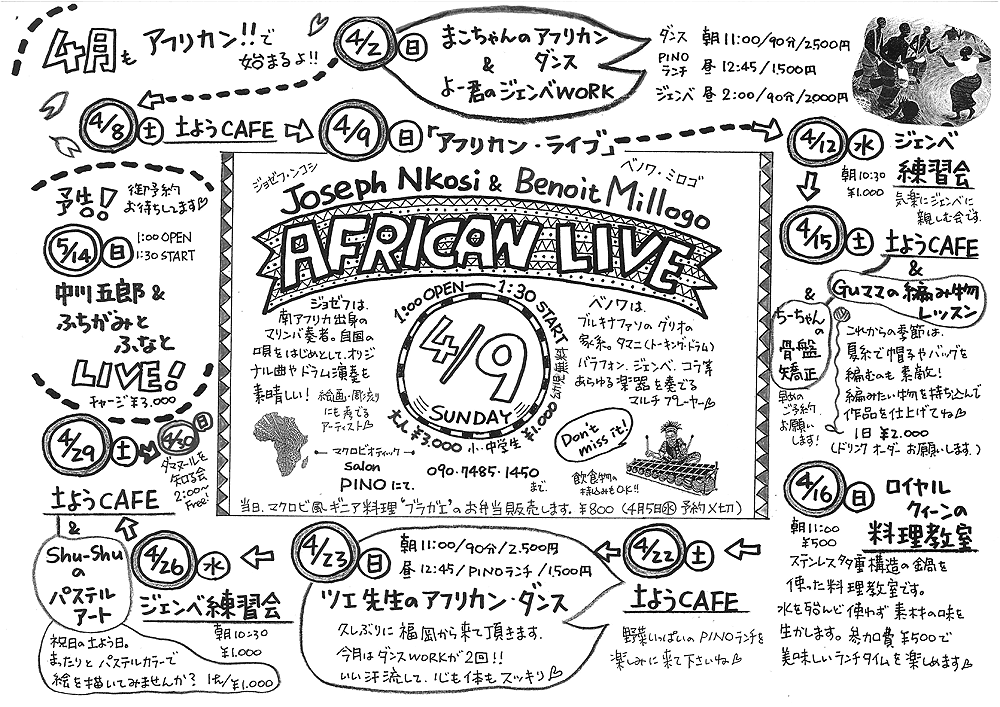 4月も アフリカン!!で
始まるよ!!
4/2 日
まこちゃんのアフリカン
& ダンス
よー君のジェンベWORK
ダンス 朝11:00/90分/2500円
PINO
ランチ 昼12:45/1,500円
ジェンベ 昼2:00/90分/2000円
4/8 土 土ようCAFE
4/9 日 「アフリカン・ライブ」
ジョゼフ・ンコシ
ベノワ・ミロゴ
Joseph Nkosi & Benoit Millogo
AFRICAN LIVE
1:00 OPEN — 1:30 START
4/9
SUNDAY
大人 ¥3,000 小・中学生 ¥1,000
ジョゼフは、
南アフリカ出身の
マリンバ奏者。自国の
唄をはじめとして、オリジ
ナル曲やドラム演奏を
素晴しい! 絵画・彫刻
にも奏でる
アーティスト
ベノワは、
ブルキナファソのグリオの
家系。タマニ(トーキング・ドラム)
バラフォン、ジェンベ、コラ等
あらゆる楽器を奏でる
マルチプレーヤー
Don't
miss it!
マクロビオティック
salon
PINO にて.
090・7485・1450
まで.
飲食物の
持込みもOK!!
当日、マクロビ風・ギニア料理“ブラガエ”のお弁当販売します。¥800 (4月5日水 予約〆切)
4/12 水 ジェンベ
練習会
朝10:30
¥1,000
気楽にジェンベに
親しむ会です.
4/15 土 土ようCAFE
&
Guママの編み物
レッスン
これからの季節は、
夏糸で帽子やバッグを
編むのも素敵!
編みたい物を持ち込んで
作品を仕上げてね
1日 ¥2,000
(ドリンクオーダーお願いします.)
&
ちーちゃんの
骨盤
矯正
早めの
ご予約
お願い
します!
4/16 日 ロイヤル
クィーンの
料理教室
朝11:00
¥500
ステンレス多重構造の鍋を
使った料理教室です。
水を殆んど使わず素材の味を
生かします。参加費¥500で
美味しいランチタイムを楽しめます
4/22 土
土ようCAFE
野菜いっぱいのPINOランチを
楽しみに来て下さいね
4/23 日
朝11:00/90分/2,500円
昼12:45/PINOランチ/1,500円
ツエ先生のアフリカン・ダンス
久しぶりに福岡から来て頂きます.
今月はダンスWORKが2回!!
いい汗流して、心も体もスッキリ
4/26 水
ジェンベ練習会
朝10:30
¥1,000
4/29 土
土ようCAFE
&
Shu-Shu
の
パステル
アート
祝日の土よう日。
まったりとパステルカラーで
絵を描いてみませんか? 1h/¥1,000
4/30 日
ダマヌールを
知る会
2:00〜
Free!
予告! 御予約
お待ちしてます
5/14 日 1:00 OPEN
1:30 START
中川五郎 &
ふちがみと
ふなと
LIVE!
チャージ¥3,000